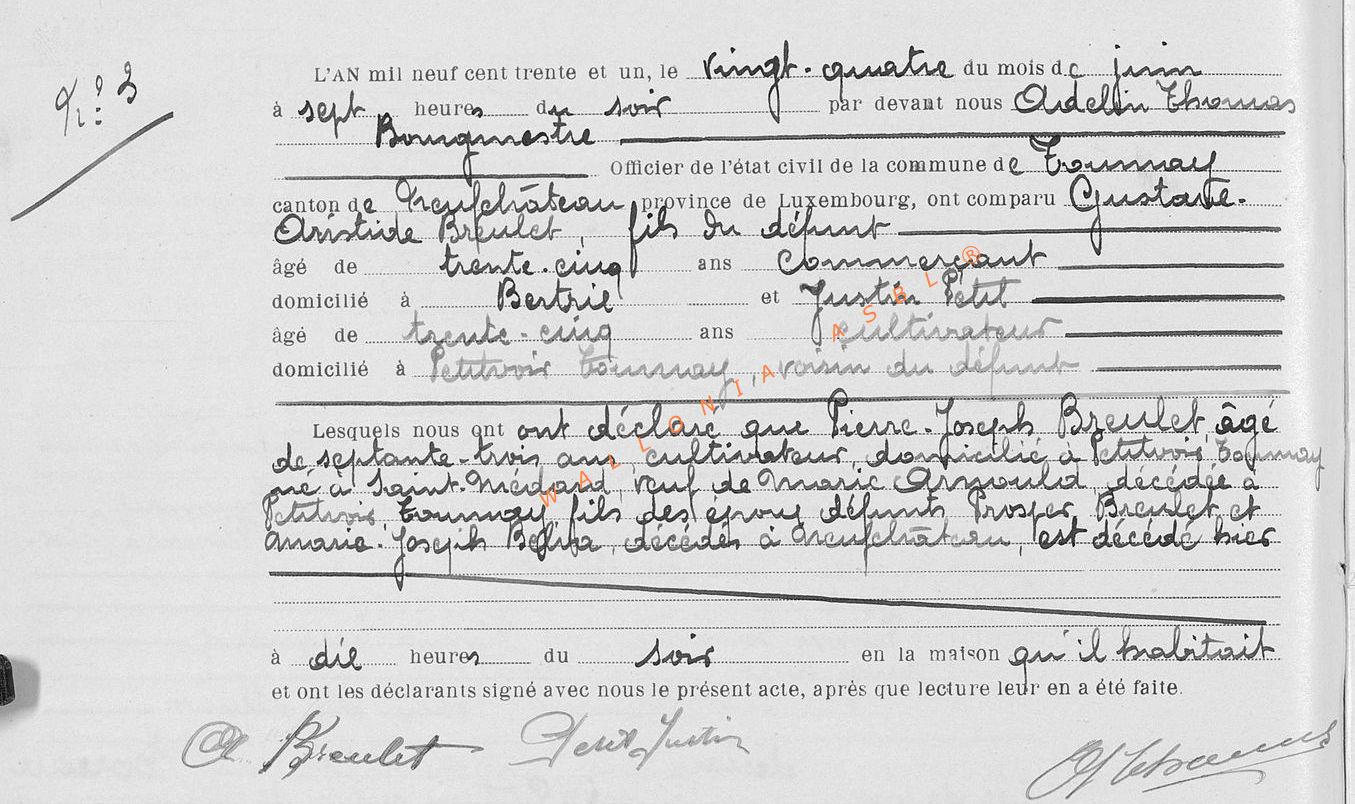 N° 3
L'AN mil neuf cent trente et un, le vingt-quatre du mois de juin
à sept heures du soir par devant nous Ardelin Thomas
Bourgmestre
Officier de l'état civil de la commune de Tournay
canton de Neufchâteau, province de Luxembourg, ont comparu Gustave-
Aristide Breulet, fils du défunt
âgé de trente-cinq ans commerçant
domicilié à Bertrix et Justin Petit
âgé de trente-cinq ans cultivateur
domicilié à Petitvoir Tournay, voisin du défunt
Lesquels nous ont ont déclaré que Pierre-Joseph Breulet, âgé
de septante-trois ans, cultivateur, domicilié à Petitvoir Tournay
né à Saint-Médard, veuf de Marie Arnould, décédée à
Petitvoir, Tournay fils des époux défunts Prosper Breulet et
Marie-Joseph décédés à Neufchâteau, est décédé hier
à dix heures du soir en la maison qu'il habitait
et ont les déclarants signé avec nous le présent acte, après que lecture leur en a été faite.
Breulet Petit Justin Thomas
WALLONIA ASBL ®